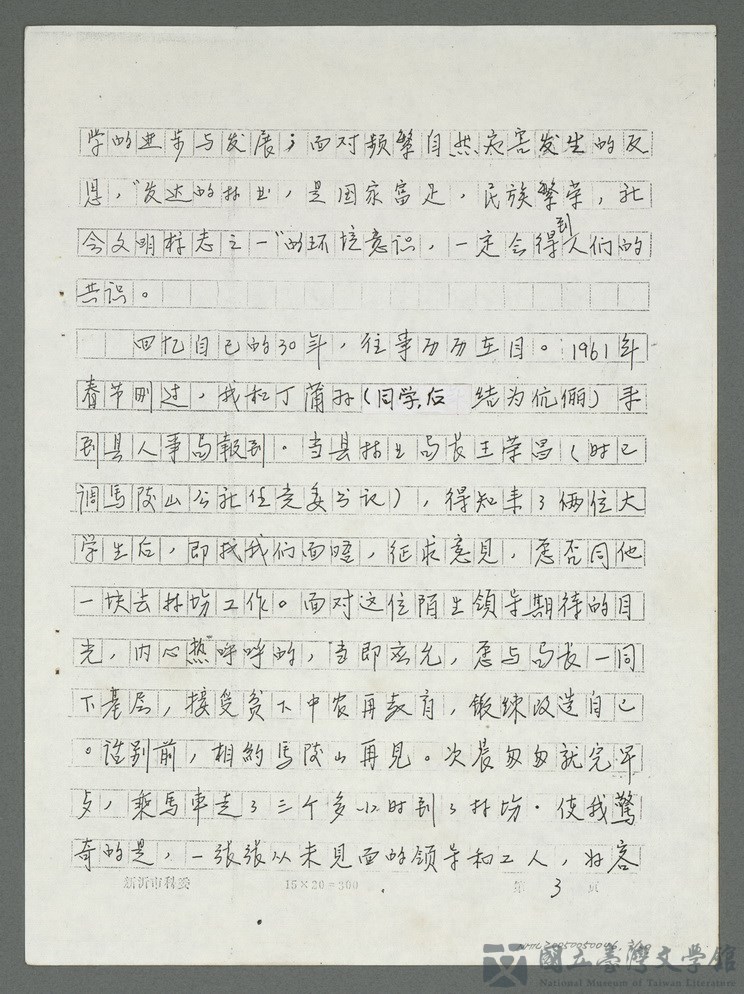 学的进步与发展；面对频繁自然灾害发生的反
思，“发达的林业，是国家富足，民族繁荣，社
会文明标志之一”的环境意识，一定会得到人们的
共识。
回忆自己的30年，往事历历在目。1961年
春节刚过，我和丁蒲孙（同学，后结为伉俪）来
到县人事局報到。当县林业局长王荣昌（时已
调馬陵山公社任党委书记），得知来了俩位大
学生后，即找我们面晤，征求意见，愿否同他
一块去林場工作。面对这位陌生领导期待的目
光，内心熱呼呼的，当即应允，愿与局长一同
下基层，接受贫下中农再教育，锻炼改造自己
。话别前，相約馬陵山再见。次晨匆匆就完早
歺，乘馬車走了三个多小时到了林場。使我驚
奇的是，一張張从未見面的领导和工人，好客
新沂市科委
15×20=300
第 3 頁
國立臺灣文學館
National Museum of Taiwan Literature